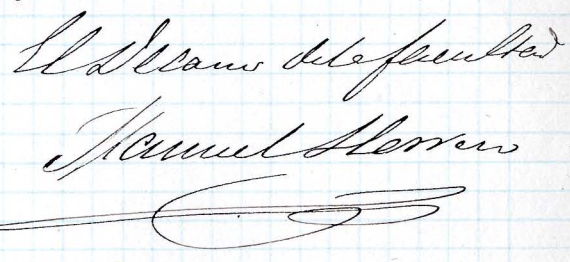 El Decano de la facultad
Manuel Herrera